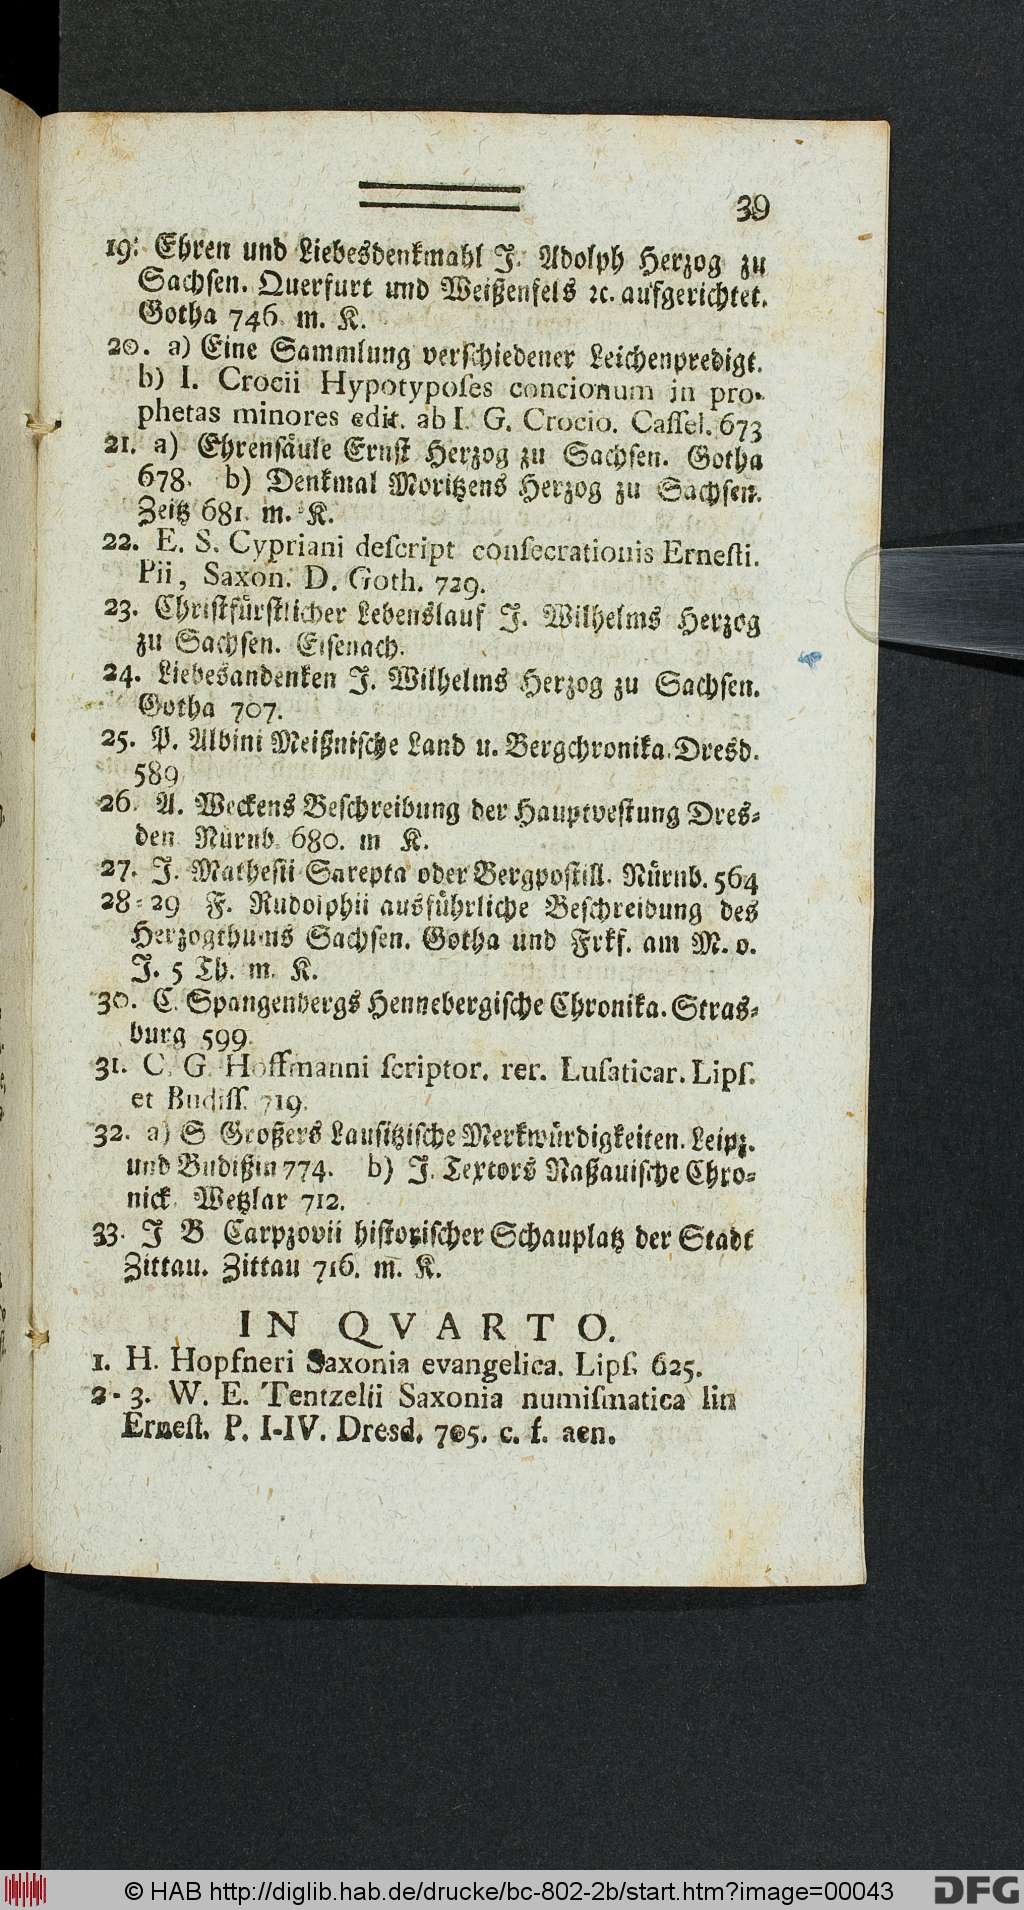 39
19. Ehren und Liebesdenkmahl J. Adolph Herzog zu
Sachsen. Querfurt und Weißenfels ꝛc. aufgerichtet.
Gotha 746. m. K.
20. a) Eine Sammlung verschiedener Leichenpredigt.
b) I. Crocii Hypotypoſes concionum in pro-
phetas minores edit. ab I. G. Crocio. Caſſel. 673
21. a) Ehrensäule Ernst Herzog zu Sachsen. Gotha
678. b) Denkmal Moritzens Herzog zu Sachsen.
Zeitz 681. m. K.
22. E. S. Cypriani deſcript conſecrationis Erneſti.
Pii, Saxon. D. Goth. 729.
23. Christfürstlicher Lebenslauf J. Wilhelms Herzog
zu Sachsen. Eisenach.
24. Liebesandenken J. Wilhelms Herzog zu Sachsen.
Gotha 707.
25. P. Albini Meißnische Land u. Bergchronika. Dresd.
589.
26. A. Weckens Beschreibung der Hauptvestung Dres-
den Nürnb. 680. m K.
27. J. Mathesii Sarepta oder Bergpostill. Nürnb. 564
28-29 F. Rudolphii ausführliche Beschreibung des
Herzogthums Sachsen. Gotha und Frkf. am M. o.
J. 5 Th. m. K.
30. C. Spangenbergs Hennebergische Chronika. Stras-
burg 599.
31. C. G. Hoffmanni ſcriptor. rer. Luſaticar. Lipſ.
et Budiſſ. 719.
32. a) S Großers Lausitzische Merkwürdigkeiten. Leipz.
und Budißin 774. b) J. Textors Naßauische Chro-
nick Wetzlar 712.
33. J B Carpzovii historischer Schauplatz der Stadt
Zittau. Zittau 716. m. K.
IN QVARTO.
1. H. Hopfneri Saxonia evangelica. Lipſ. 625.
2-3. W. E. Tentzelii Saxonia numiſmatica lin
Erneſt. P. I-IV. Dresd. 705. c. f. aen.
© HAB http://diglib.hab.de/drucke/bc-802-2b/start.htm?image=00043
DFG